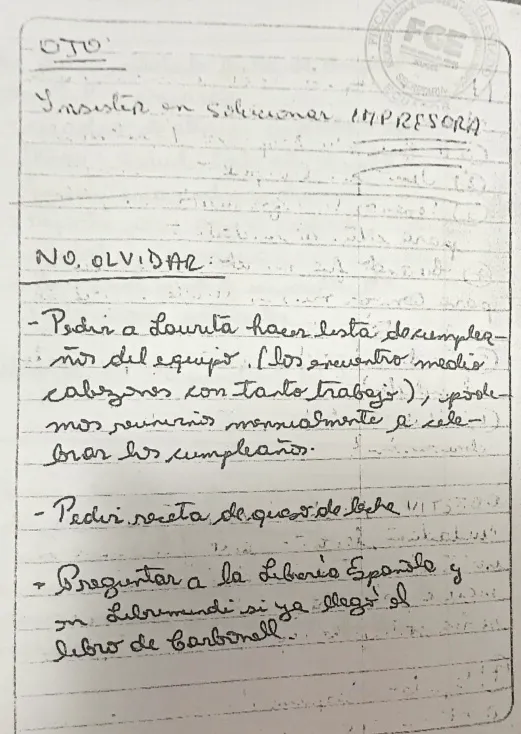 OTO:
Insistir en solucionar IMPRESORA
FCE
NO OLVIDAR:
- Pedir a Laurita hacer lista de cumplea-
ños del equipo. (los encuentro medio
cabezones con tanto trabajo), pode-
mos reunirnos mensualmente a cele-
brar los cumpleaños.
- Pedir receta de queso de leche
- Preguntar a la Librería Española y
en Libremundi si ya llegó el
libro de Carbonell.